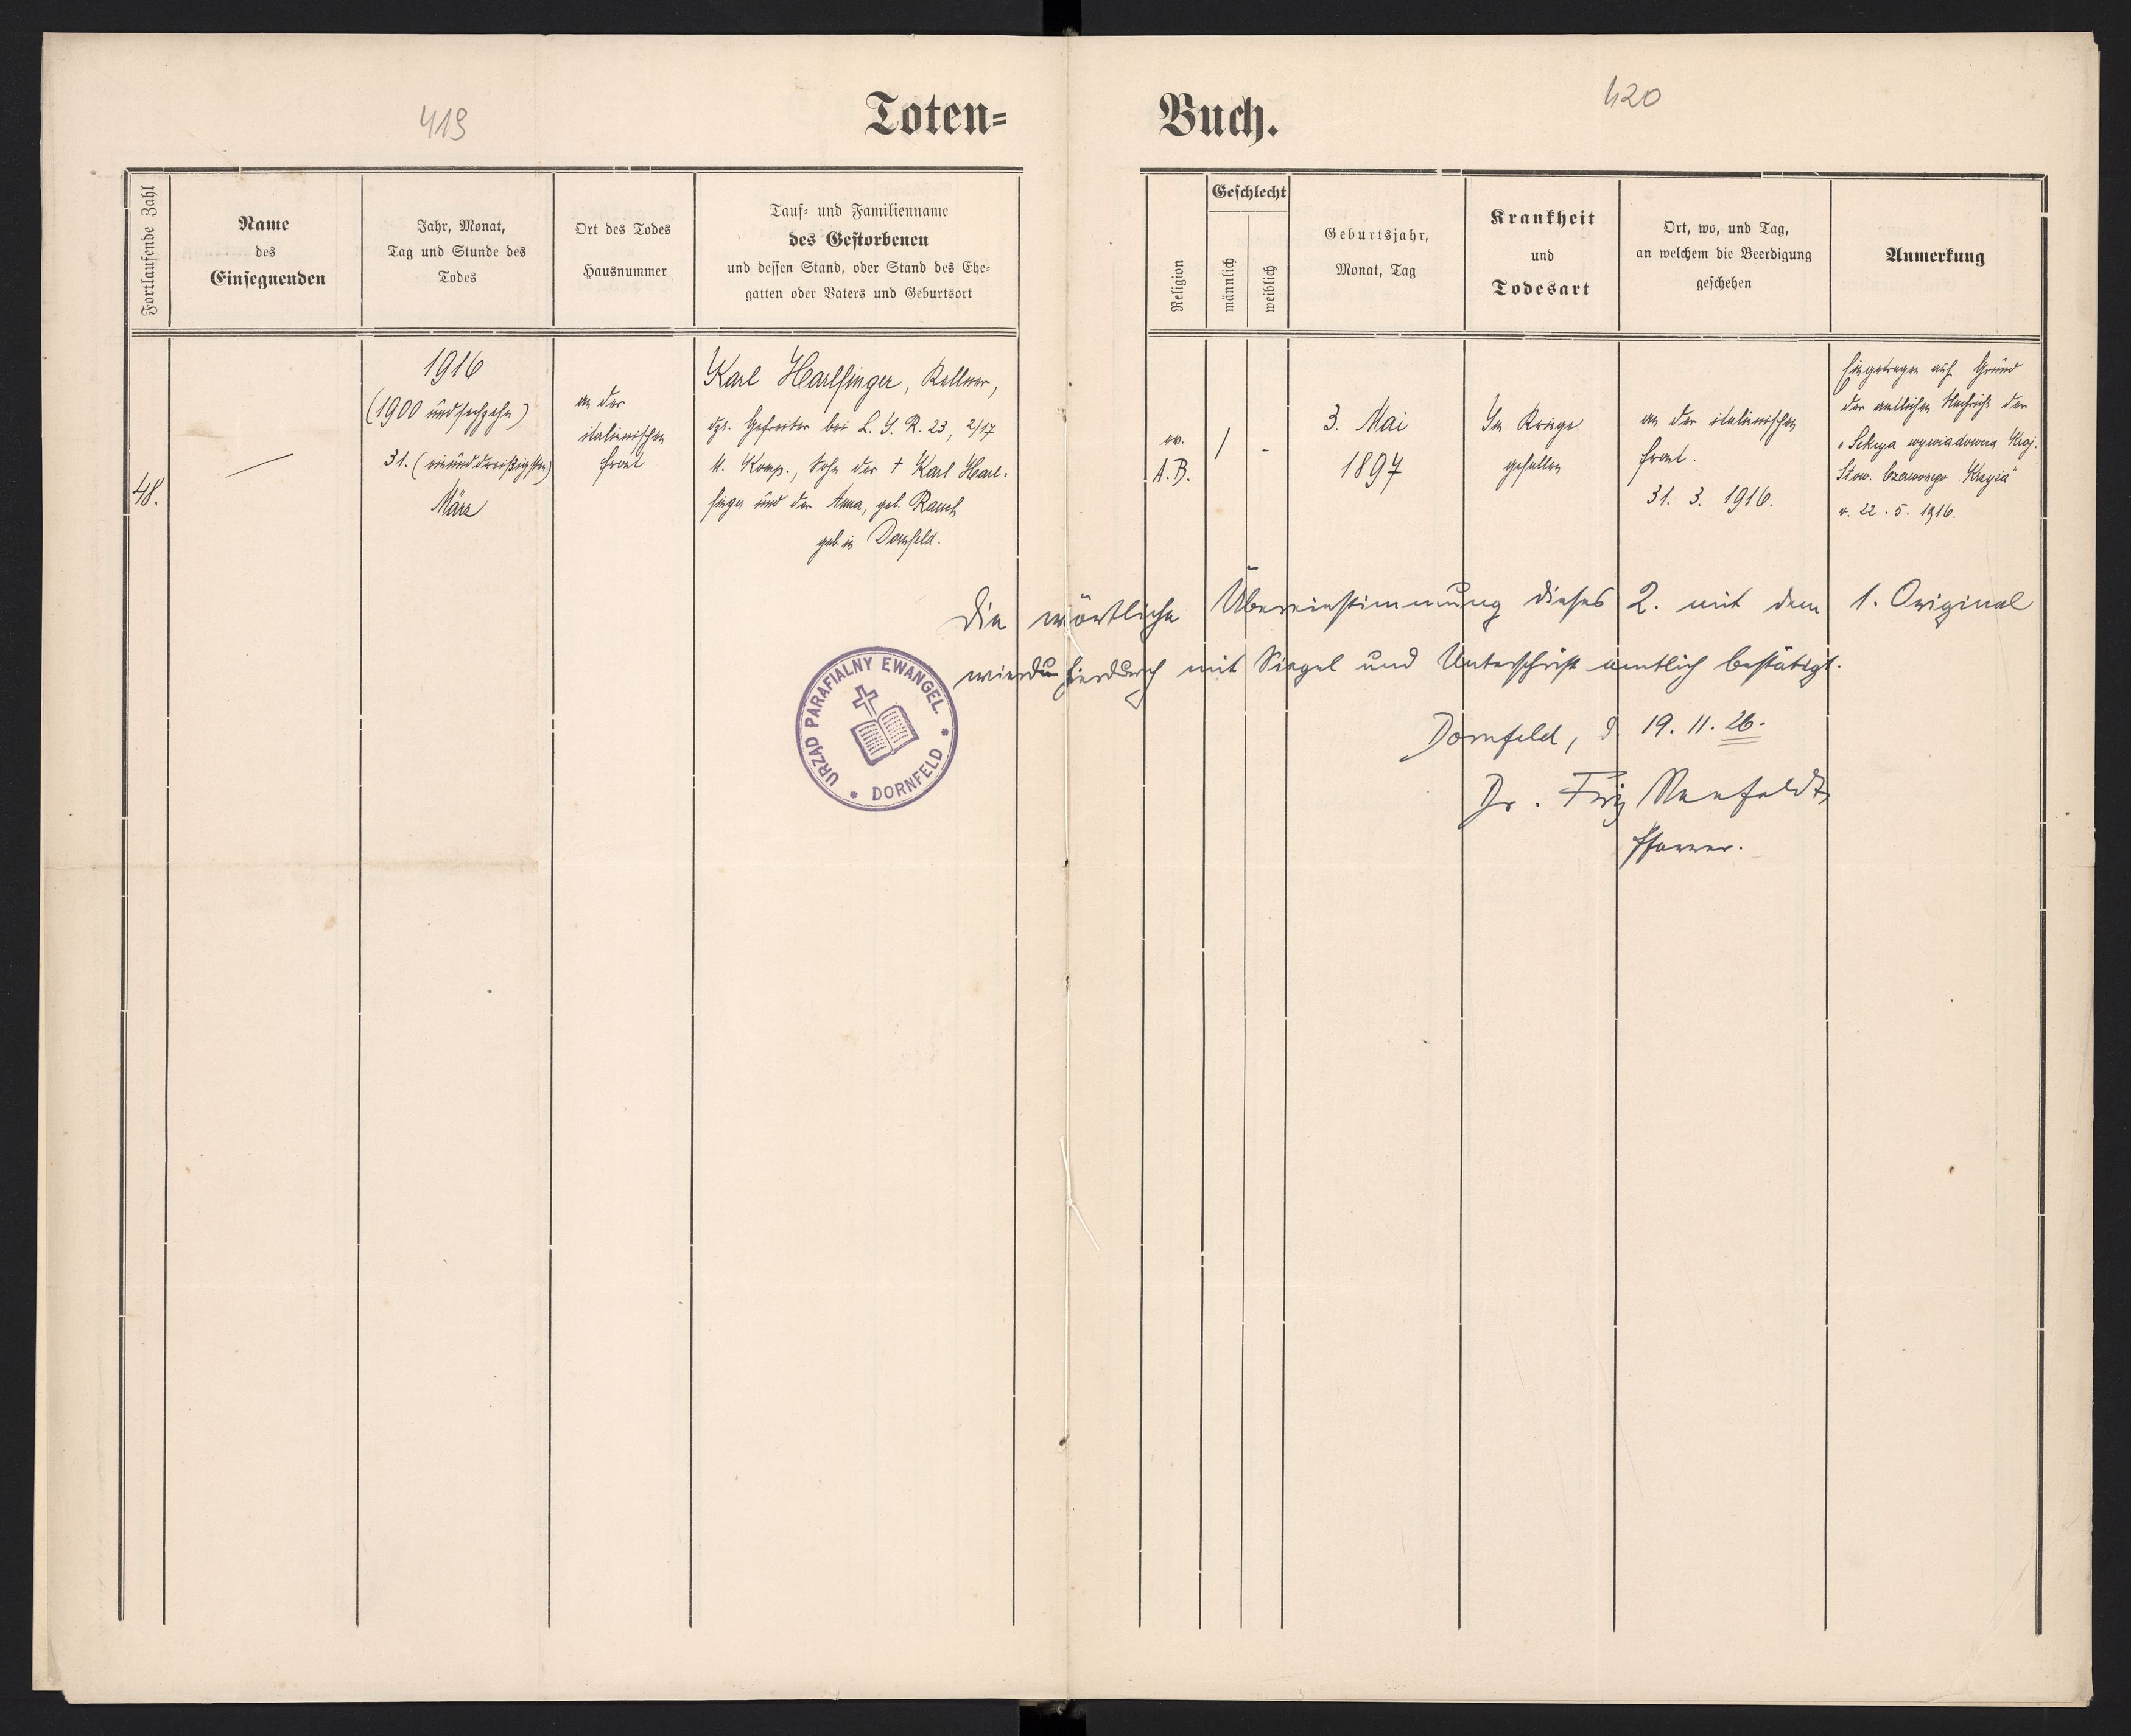 419
420
Toten=
Buch.
Fortlaufende Zahl
Name
des
Einsegnenden
Jahr, Monat,
Tag und Stunde des
Todes
Ort des Todes
Hausnummer
Tauf= und Familienname
des Gestorbenen
und dessen Stand, oder Stand des Ehe=
gatten oder Vaters und Geburtsort
Religion
Geschlecht
männlich
weiblich
Geburtsjahr,
Monat, Tag
Krankheit
und
Todesart
Ort, wo, und Tag,
an welchem die Beerdigung
geschehen
Anmerkung
48.
—
1916
(1900 undsechzehn)
31. (einunddreißigsten)
März
an der
italienischen
Front
Karl Harlfinger, Kellner,
dzt. Gefreiter bei L. I. R. 23, 2/17
M. Komp., Sohn des † Karl Harl=
finger und der Anna, geb. Rauch
geb. in Dornfeld.
ev.
A.B.
/
-
3. Mai
1897
Im Kriege
gefallen
an der italienischen
Front.
31. 3. 1916.
Eingetragen auf Grund
der amtlichen Nachricht der
"Sekcya wywiadowcza Kraj.
Stow. Czerwonego Krzyża"
v. 22. 5. 1916.
Die wörtliche Übereinstimmung dieses 2. mit dem 1. Original
wird hierdurch mit Siegel und Unterschrift amtlich bestätigt.
Dornfeld, d 19. 11. 26.
Dr. Fritz Seefeldt,
Pfarrer.
URZĄD PARAFIALNY EWANGEL.
* DORNFELD *